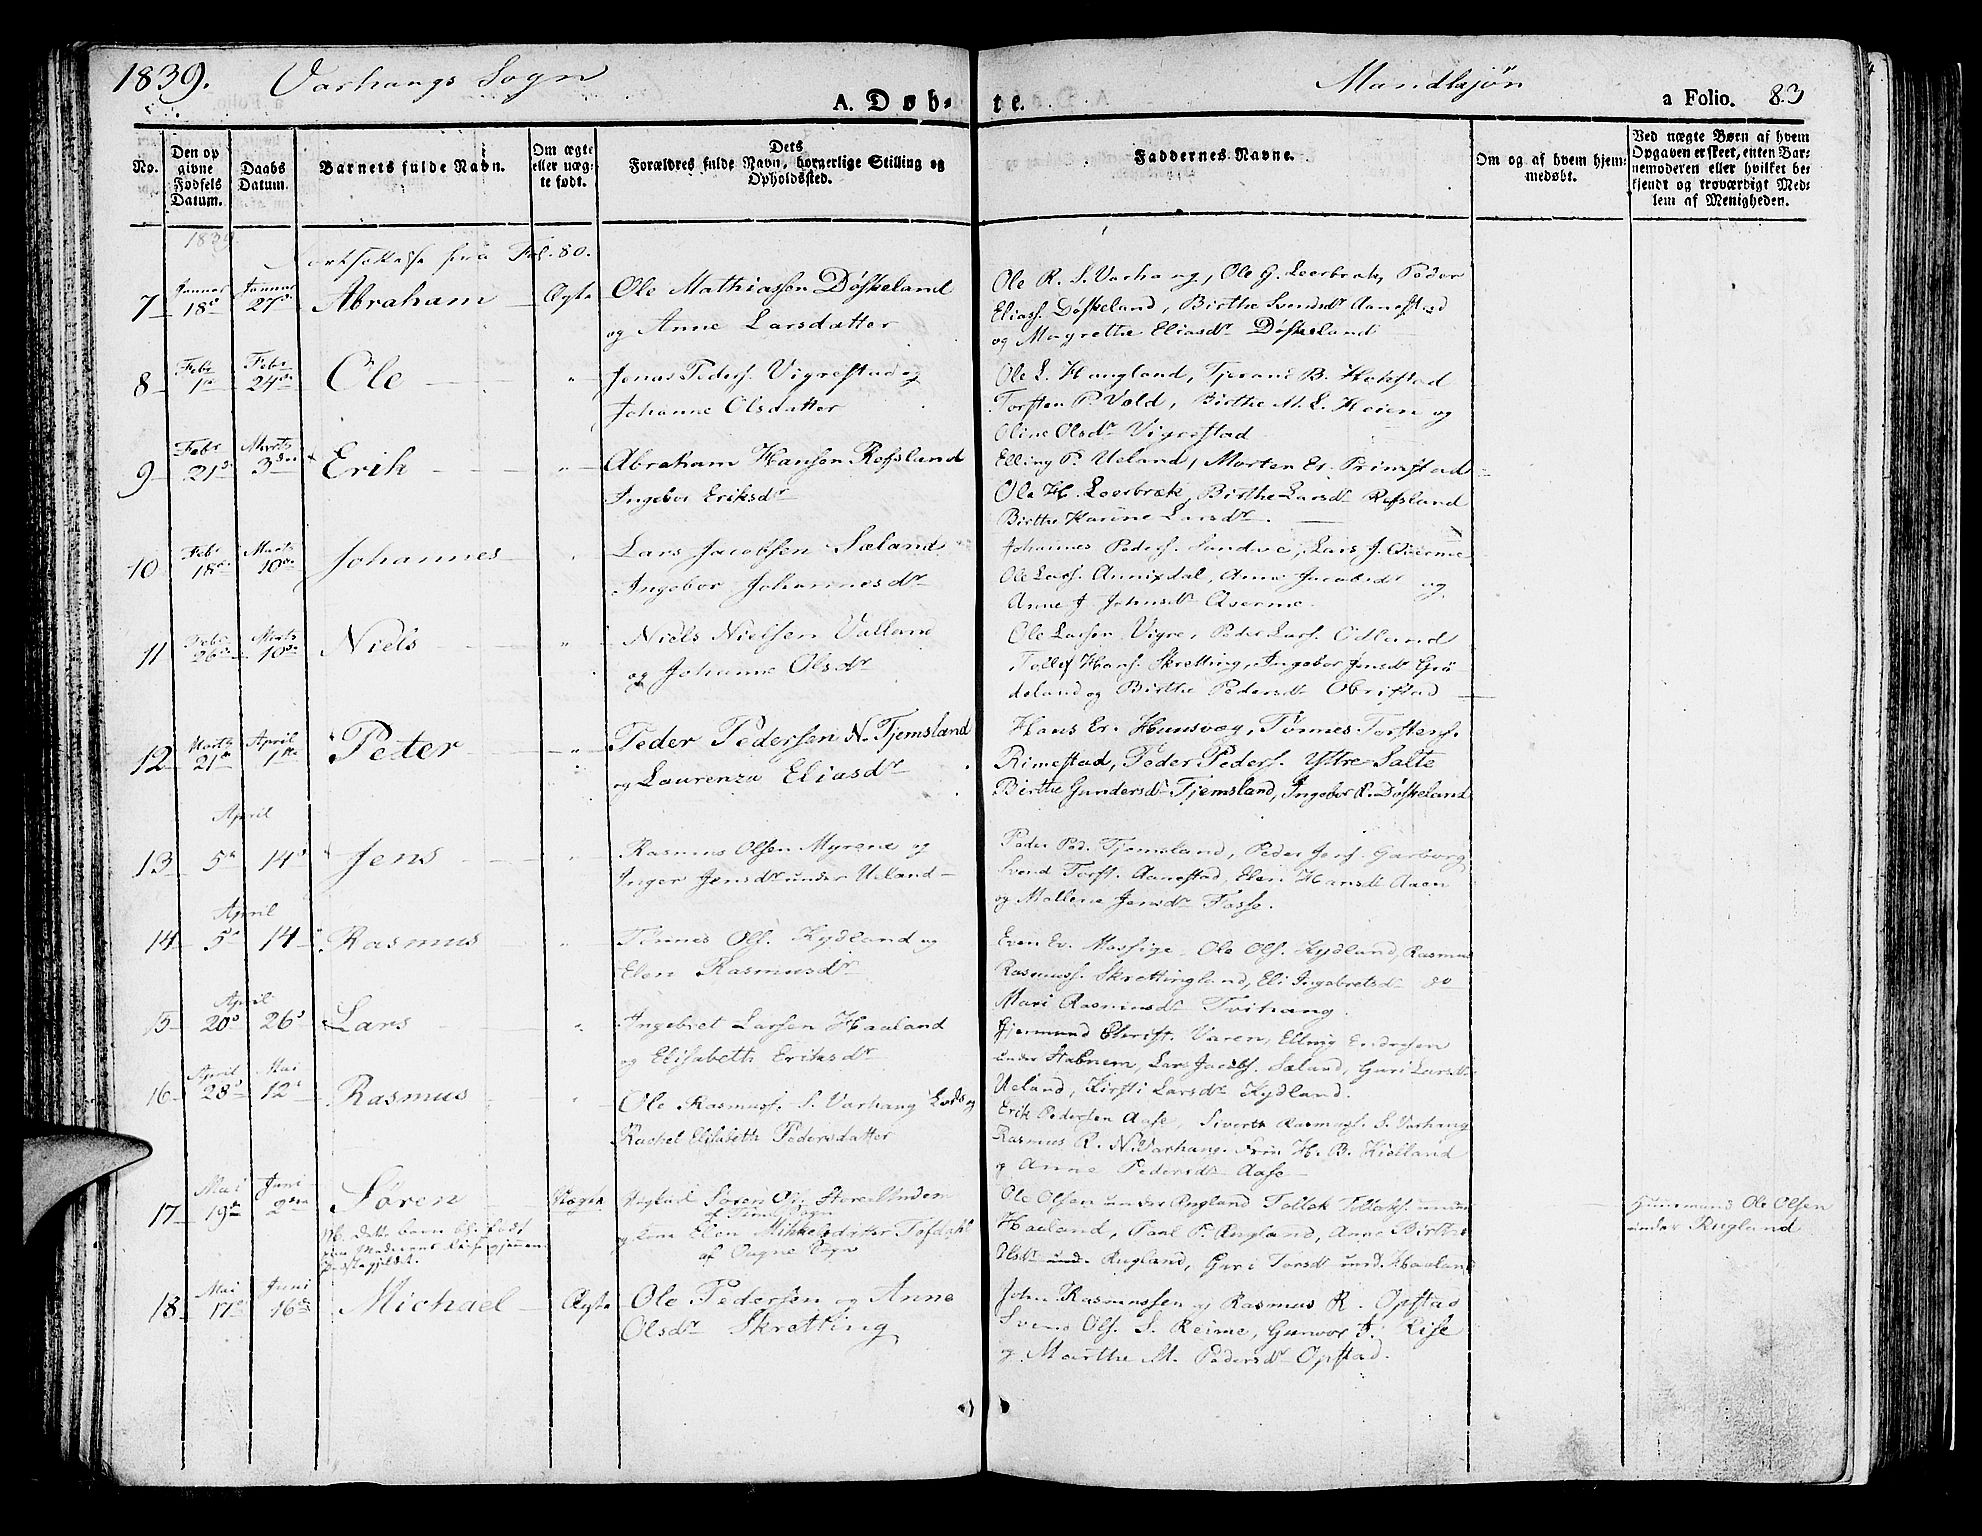 1839. Varhaugs Sogn Mandkjøn
A. Døb- te. a Folio. 83
No.
Den op
givne
Fødsels
Datum.
Daabs
Datum.
Barnets fulde Navn.
Om ægte
eller uæg-
te født.
Dets
Forældres fulde Navn, borgerlige Stilling og
Opholdssted.
Faddernes Navne.
Om og af hvem hjem-
medøbt.
Ved uægte Børn af hvem
Opgaven er skeet, enten Bar-
nemoderen eller hvilket be-
kjendt og troværdigt Med-
lem af Menigheden.
1839
fra Fol. 80.
7 Januar 18de Januar 27de Abraham Ægte
Ole Mathiassen Døskeland
og Anne Larsdatter
Ole R. S. Varhaug, Ole G. Leerbræk, Peder
Eliass. Døskeland, Birthe Svendsdr Aanestad
og Magrethe Eliasdr Døskeland
8 Febr 1ste Febr 24de Ole "
Jonas Peders. Vigrestad og
Johanne Olsdatter
Ole L. Haugland, Tjeran B. Hobstad
Torsten P. Vold, Birthe M. L. Høien og
Oline Olsdr Vigrestad
9 Febr 21de Marts 3die Erik "
Abraham Hansen Refsland
Ingebor Eriksdr
Elling P. Ueland, Morten Er. Primstad
Ole H. Leerbræk, Birthe Larsdr Refsland
Birthe Karine Larsdr.
10 Febr 18de Marts 10de Johannes "
Lars Jacobsen Sæland
Ingebor Johannesdr
Johannes Peders. Sandve, Lars J. Qverme
Ole Lars. Annixdal, Anne Jacobsdr og
Anne J. Johnsdr Qverme.
11 Febr 26de Marts 10de Niels "
Niels Nielsen Valland
og Johanne Olsdr
Ole Larsen Vigre, Peder Lars. Odland
Tollef Hans. Skretting, Ingebor Jensdr Grø
deland og Birthe Pedersdr Obrestad
12 Marts 21de April 1ste Peter "
Peder Pedersen N. Tjemsland
og Laurenza Eliasdr
Hans Er. Huusvæg, Tønnes Torstens.
Rimestad, Peder Peders. Ystre Salte
Birthe Gundersdr Tjemsland, Ingebor R. Døskeland
April
13 5te 14de Jens "
Rasmus Olsen Myrene og
Inger Jensdr under Ueland
Peder Ped. Tjemsland, Peder Jens. Garborg
Svend Torst. Aanestad, Elen Hansdr Aaen
og Mallene Jensdr Fosse.
April
14 5te 14 Rasmus "
Tønnes Ols. Kydland og
Elen Rasmusdr
Even Ev. Mossige, Ole Ols. Kydland, Rasmus
Rasmuss. Skrettingland, Eli Ingebretsdr
Mari Rasmusdr Tvihaug.
April
15 20de 26de Lars "
Ingebret Larsen Haaland
og Elisabeth Eriksdr
Gjermund Christ. Varen, Elling Endresen
under Stabnem, Lars Jacobs. Sæland, Guri Larsdr
Ueland, Kirsti Larsdr Kydland.
16 April 28de Mai 12te Rasmus "
Ole Rasmuss. S. Varhaug og
Rachel Elisabeth Pedersdatter
Erik Pedersen Aase, Sivert Rasmuss. S. Varhaug
Rasmus R. N. Varhaug, H. B. Kielland
og Anne Pedersdr Aase
17 Mai 19de Juni 2den Søren Uægte
Søren
Elen Mikkelsdatter
af Ougne Sogn
Ole Olsen under Rugland Tollak Tollaks. under
Haaland, Paul P. Rugland, Anne Birthe
Olsdr Rugland, Guri Torsdr und. Haaland
Huusmand Ole Olsen
under Rugland
18 Mai 17de Juni 16de Michael Ægte
Ole Pedersen og Anne
Olsdr Skretting
John Rasmussen og Rasmus R. Opstad
Svend Ols. S. Reime, Gunvor T. Rise
og Marthe M. Pedersdr Opstad.